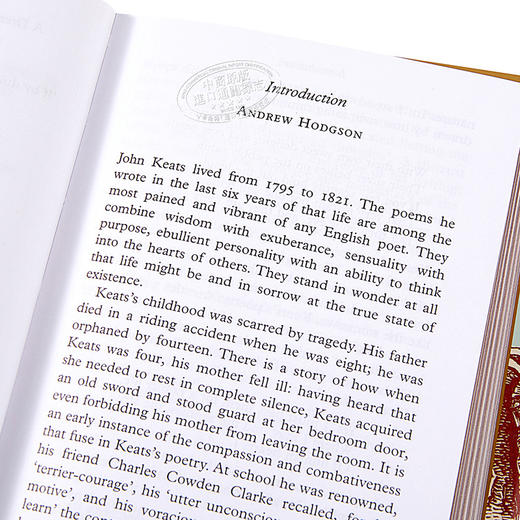 Introduction
ANDREW HODGSON
John Keats lived from 1795 to 1821. The poems he
wrote in the last six years of that life are among the
most pained and vibrant of any English poet. They
combine wisdom with exuberance, sensuality with
purpose, ebullient personality with an ability to think
into the hearts of others. They stand in wonder at all
that life might be and in sorrow at the true state of
existence.
Keats's childhood was scarred by tragedy. His father
died in a riding accident when he was eight; he was
orphaned by fourteen. There is a story of how when
Keats was four, his mother fell ill: having heard that
she needed to rest in complete silence, Keats acquired
an old sword and stood guard at her bedroom door,
even forbidding his mother from leaving the room. It is
an early instance of the compassion and combativeness
that fuse in Keats's poetry. At school he was renowned,
his friend Charles Cowden Clarke recalled, for
'terrier-courage', his 'utter unconscious
motive', and his voracious
learn' the